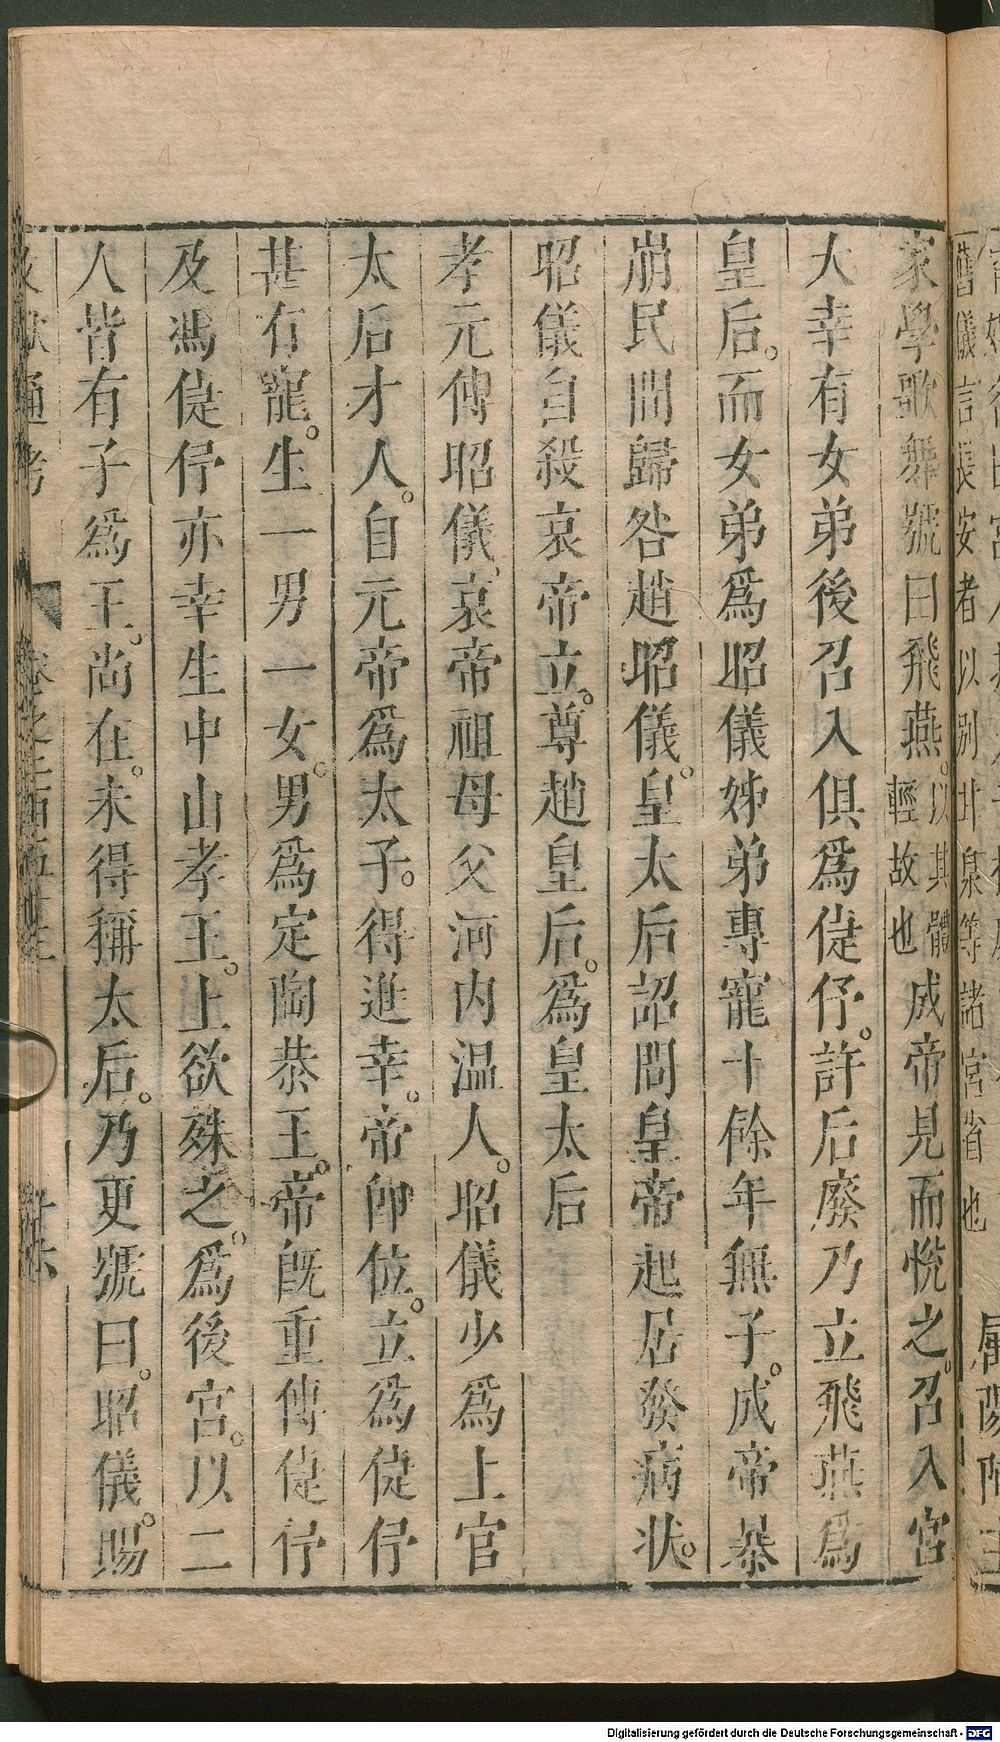 舊儀言長安者以別北泉等諸宮省也
家學歌舞號曰飛燕。以其體輕故也成帝見而悅之。召入宮
大幸有女弟後召入俱爲倢伃。許后廢乃立飛燕爲
皇后。而女弟爲昭儀姊弟專寵十餘年無子。成帝暴
崩民間歸咎趙昭儀。皇太后詔問皇帝起居發病狀。
昭儀自殺哀帝立。尊趙皇后。爲皇太后
孝元傅昭儀。哀帝祖母父河内温人。昭儀少爲上官
太后才人。自元帝爲太子。得進幸。帝卽位。立爲倢伃
甚有寵。生一男一女。男爲定陶恭王。帝旣重傅倢伃
及馮倢伃亦幸生中山孝王。上欲殊之。爲後宮。以二
人皆有子爲王。尚在。未得稱太后。乃更號曰。昭儀。賜
Digitalisierung gefördert durch die Deutsche Forschungsgemeinschaft - DFG